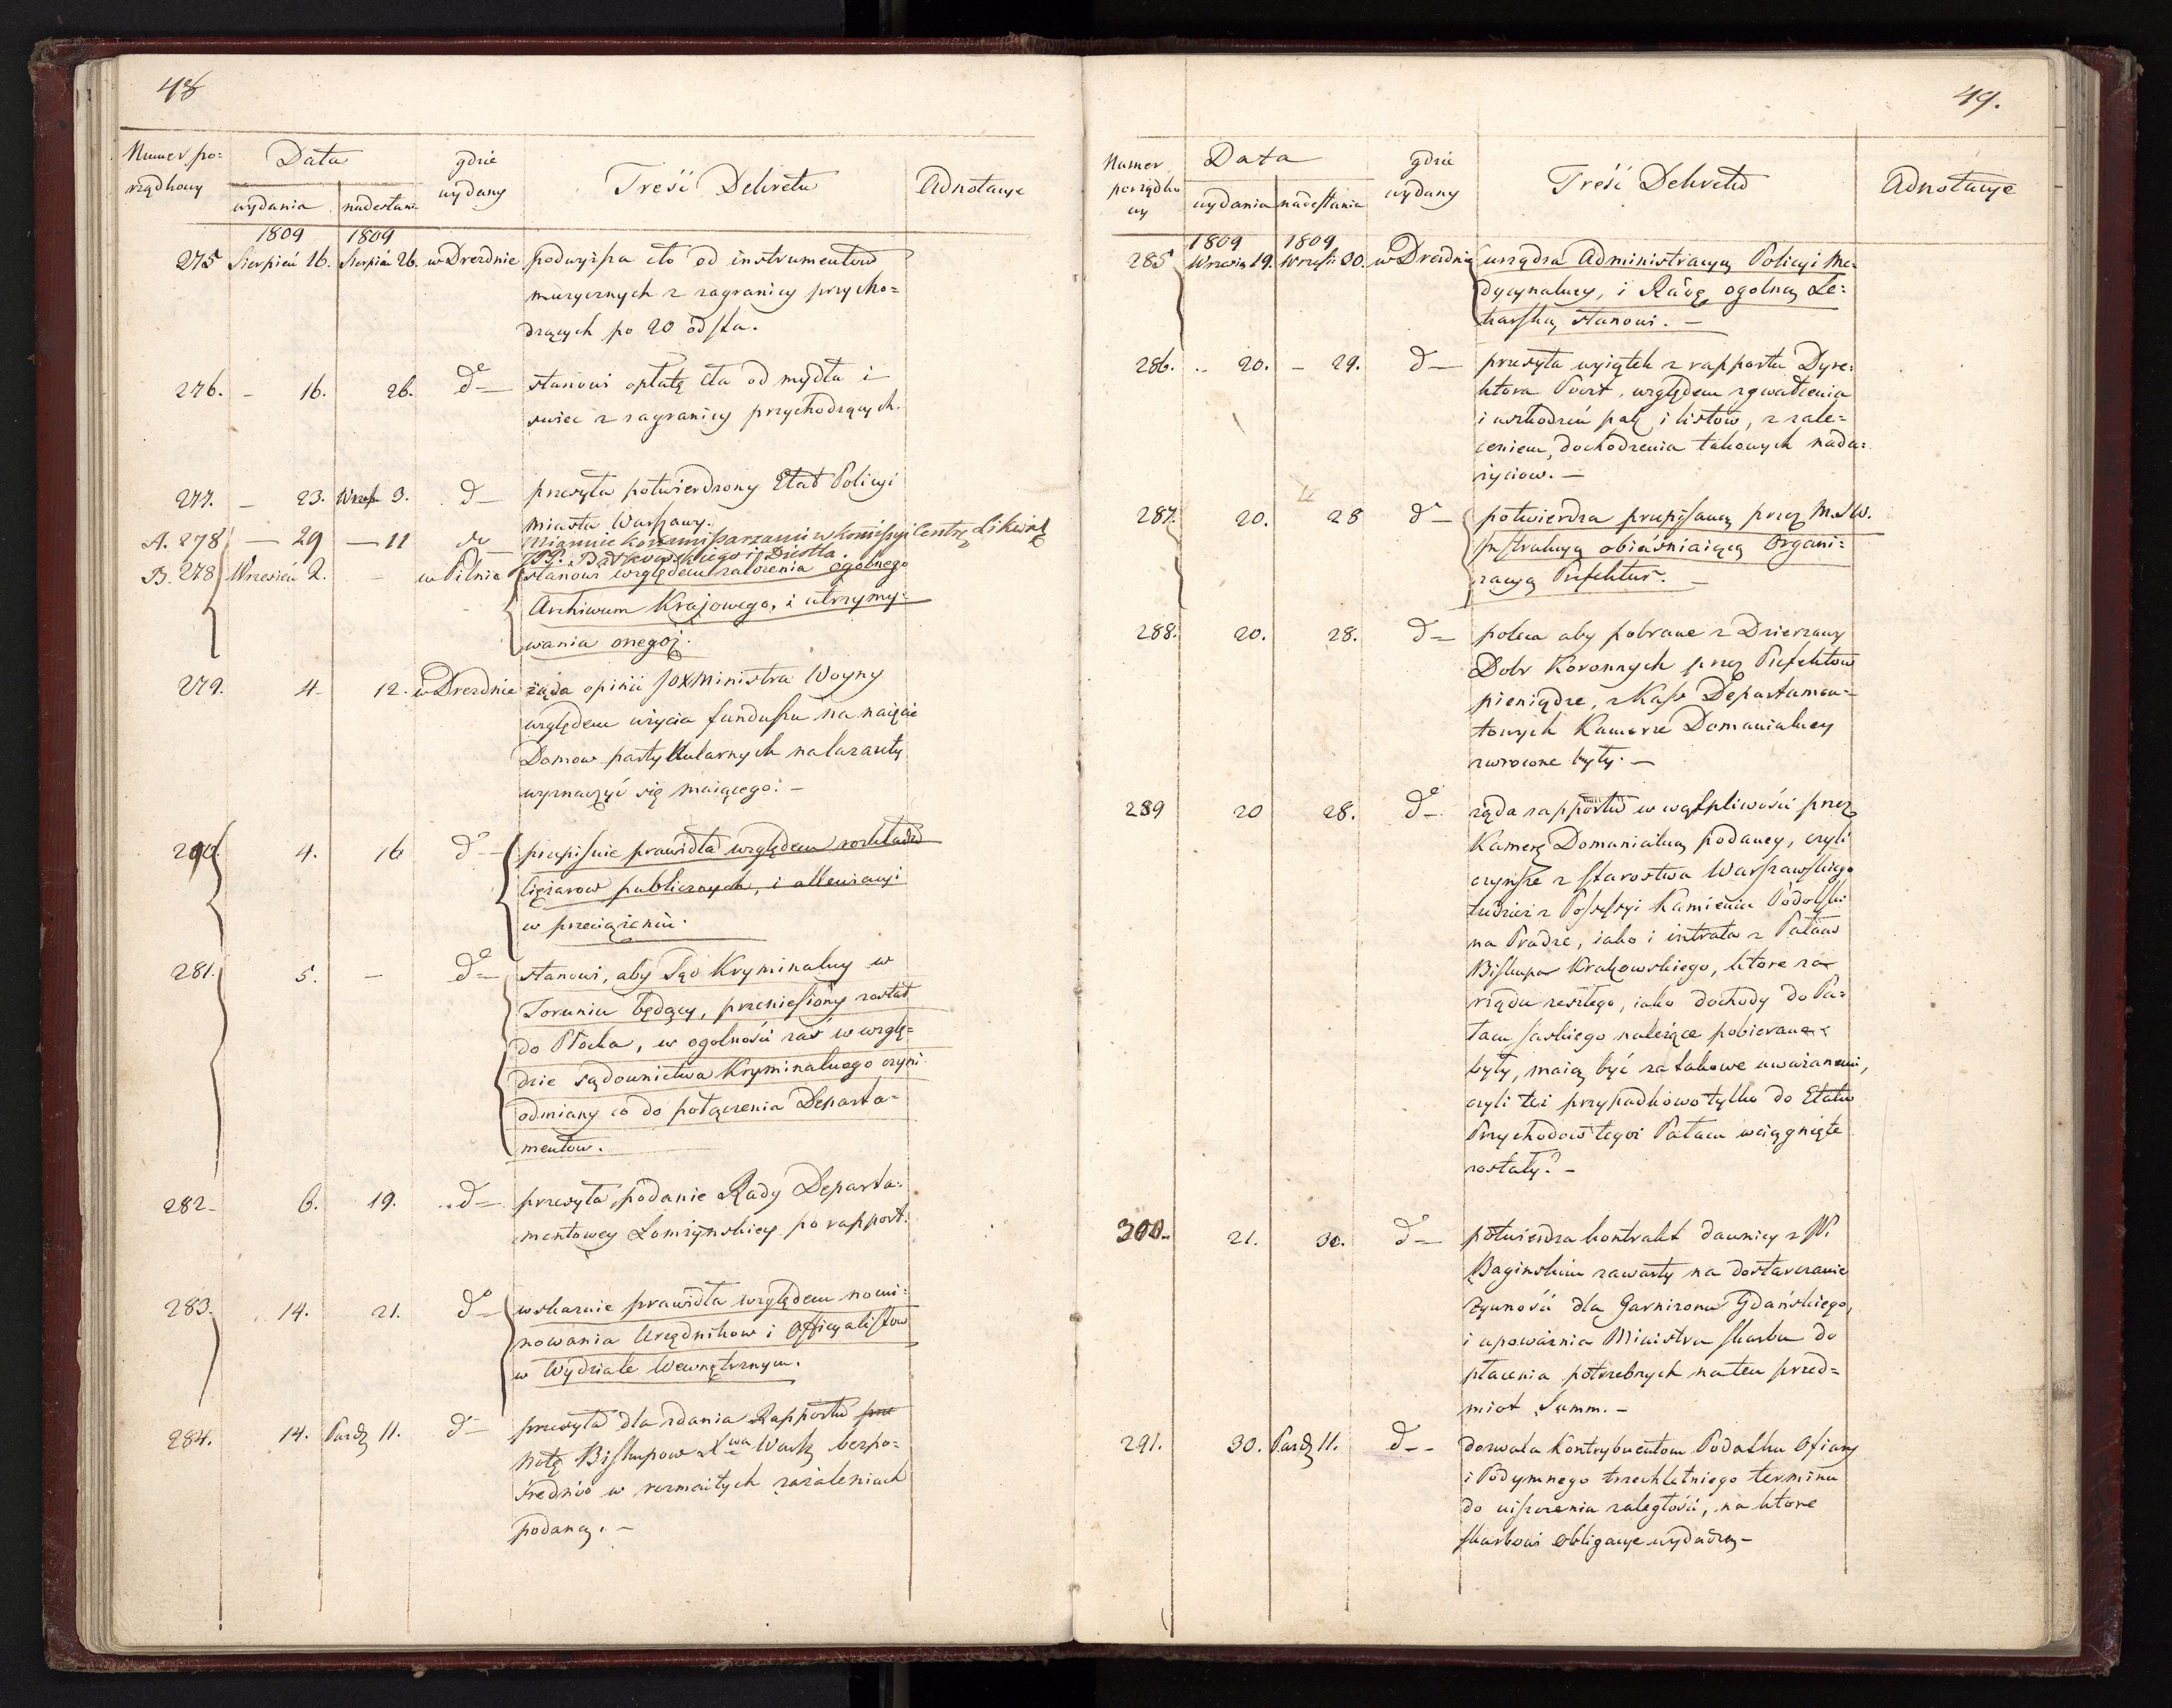 48
Numer po=
rządkowy
Data
wydania
nadesłania
gdzie
wydany
Treść Dekretu
Adnotacye
1809 1809
275 Sierpień 16. Sierpień 26. w Dreźnie podwyisza cło od instrumentow
muzycznych z zagranicy przycho=
dzących po 20 od sta.
276. - 16. 26. do — stanowi opłatę cła od mydła i
swiec z zagranicy przychodzących.
277. - 23. Wrześ 3. do — przesyła potwierdzony Etat Policyi
Miasta Warszawy.
A. 278 — 29 — 11 do Mianuie Kommissarzami w Komissyi Centr. Likwid.
PP.
B. 278 Wrzesień 2. - w Pilnie stanowi względem założenia ogolnego
Archiwum Krajowego, i utrzymy=
wania onegoż.
279. 4 12. w Dreźnie żąda opinii JOX Ministra Woyny
względem użycia funduszu na naięcie
Domow partykularnych na lazarety
wyznaczyć się maiącego. —
4. 16 do — przepisuie prawidła względem rozkładu
ciężarow publicznych, i allewiacyi
w przeciążeniu.
281. 5. — do — stanowi, aby Sąd Kryminalny w
Toruniu będący, przeniesiony został
do Płocka, w ogolności zaś w wzglę=
dzie sądownictwa Kryminalnego czyni
odmiany co do połączenia Departa=
mentow.
282 - 6. 19. do — przesyła podanie Rady Departa=
mentowey Łomżyńskiey po rapport.
283. 14. 21. do — wskazuie prawidła względem nomi=
nowania Urzędnikow i Officyalistow
w Wydziale Wewnętrznym.
284. 14. Paźdz 11. do — przesyła dla zdania Rapportu prze
Notę Biskupow Xwa Warsz bezpo=
średnio w rozmaitych zażaleniach
podaną. —
49.
Numer
porządko
wy
Data
wydania
nadesłania
gdzie
wydany
Treść Dekretu
Adnotacye
1809 1809
285 Wrzesień 19. Wrześ: 30. w Dreźnie urządza Administracyą Policyi Me=
dycynalney, i Radę ogolną Le=
karską stanowi. —
286. .. 20. — 29. do — przesyła wyiątek z rapportu Dyre=
ktora Poczt, względem zgwałcenia
i uszkodzeń pak i listow, z zale=
ceniem dochodzenia takowych nadu=
życiow. —
287. 20. 28 do — potwierdza przepisaną przez M.S.W.
Instrukcyą obiaśniaiącą Organi=
zacyą Prefektur. —
288. 20. 28. do — poleca aby pobrane z Dzierżawy
Dobr Koronnych przez Prefektow
pieniądze, z Kass Departamen=
towych Kamerze Domanialney
zwrocone były. —
289 20 28. do — żąda rapportu w wątpliwości przez
Kamerę Domanialną podaney, czyli
czynsze z Starostwa Warszawskiego
tudzież z Possessyi Kamienia Podolski
na Pradze, iako i intrata z Pałacu
Biskupa Krakowskiego, ktore za
rządu zeszłego, iako dochody do Pa=
łacu Saskiego należące pobierane
były, maią być za takowe uważanemi,
czyli też przypadkowo tylko do Etatu
Przychodow tegoż Pałacu wciągnięte
zostały? —
300. 21. 30. do — potwierdza kontrakt dawniey z JP.
Baginskim zawarty na dostarczanie
żywności dla Garnizonu Gdańskiego,
i upoważnia Ministra Skarbu do
płacenia potrzebnych na ten przed=
miot Summ. —
291. 30. Paźdz 11. do — dozwala Kontrybuentom Podatku Ofiary
i Podymnego trzechletniego terminu
do uiszczenia zaległości, na ktore
skarbowi obligacye wydadzą —